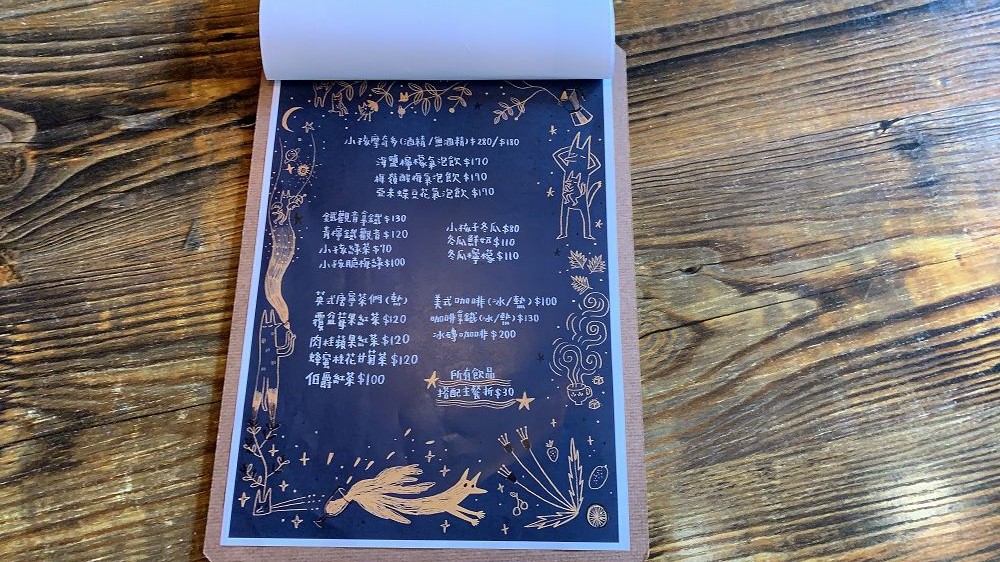 小孩摩奇多(酒精/無酒精)$280/$180
海鹽檸檬氣泡飲 $170
梅獲酸梅氣泡飲 $190
亞未蝶豆花氣泡飲 $190
鐵觀音拿鐵 $130
青檸鐵觀音 $120
小孩綠茶 $70
小孩脆梅綠 $100
小孩子冬瓜 $80
冬瓜鮮奶 $110
冬瓜檸檬 $110
英式唐寧茶們(熱)
覆盆莓果紅茶 $120
肉桂蘋果紅茶 $120
蜂蜜桂花甘菊茶 $120
伯爵紅茶 $100
美式咖啡(冰/熱) $100
咖啡拿鐵(冰/熱) $130
冰磚咖啡 $200
所有飲品
搭配主餐折$30